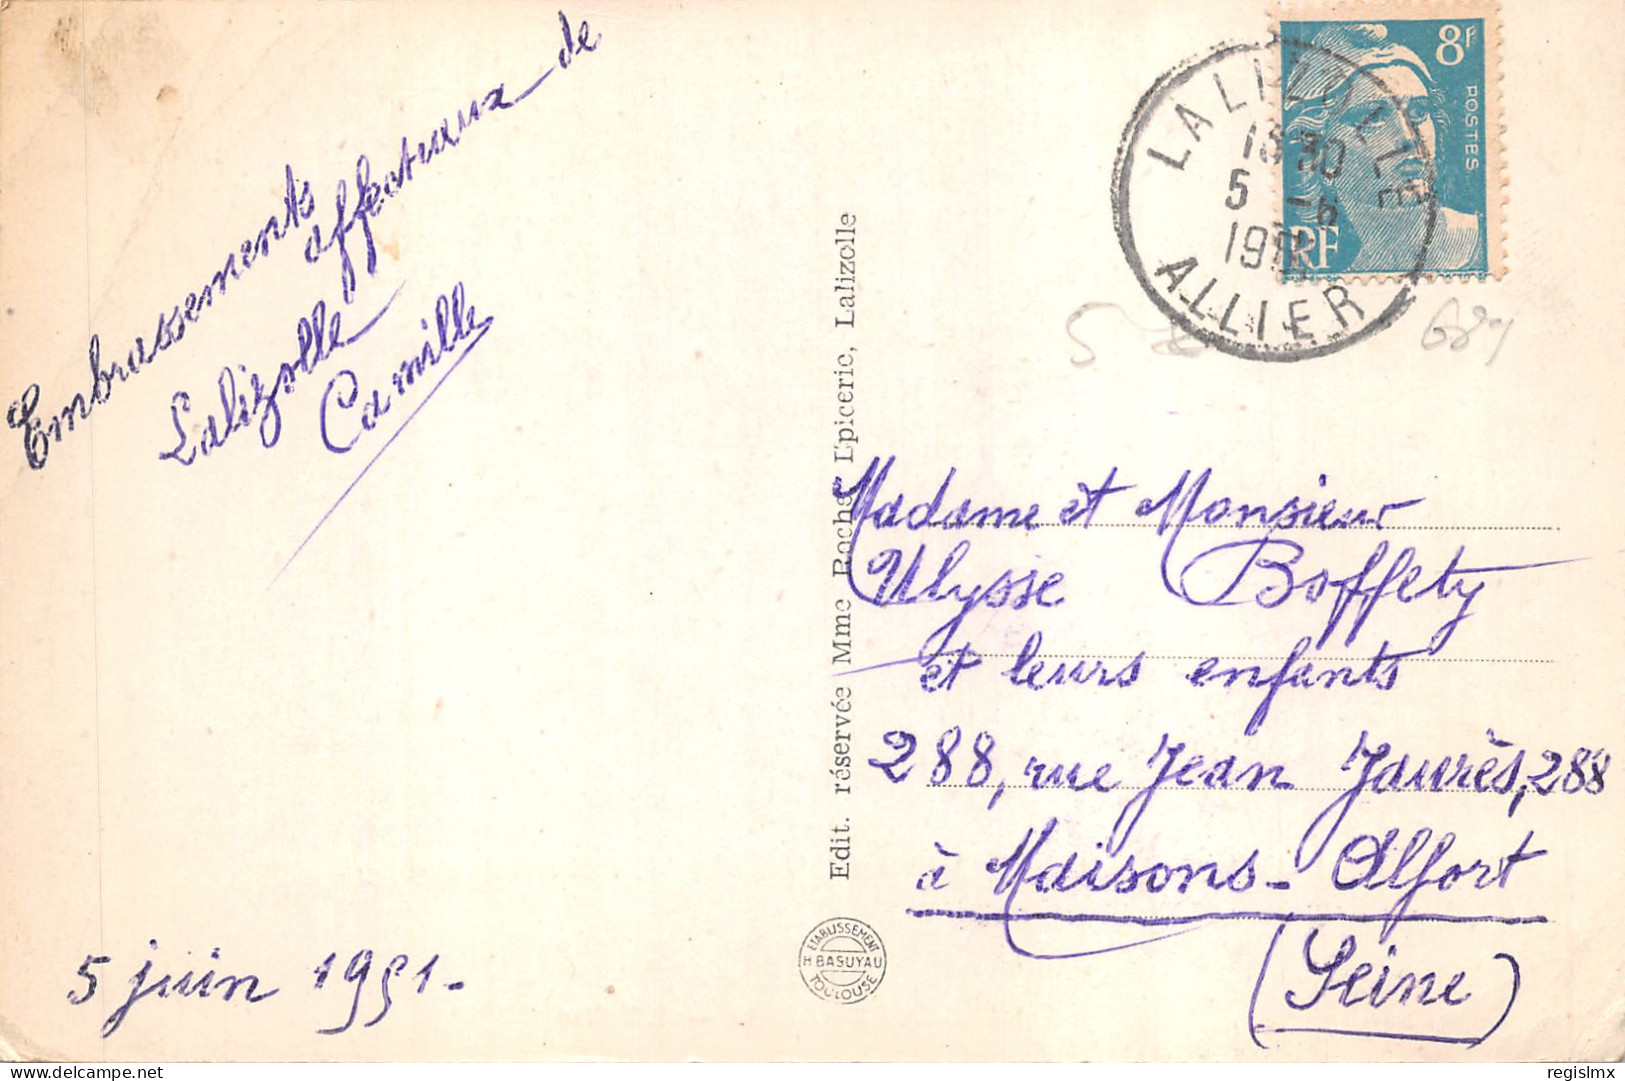 Embrassements
affectueux de
Lalizolle
Camille
5 juin 1951.
Edit. réservée Mme Roche Epicerie, Lalizolle
ETABLISSEMENT
H BASUYAU
TOULOUSE
8F
POSTES
RF
LALIZOLLE
5 -6
1951
ALLIER
Madame et Monsieur
Ulysse Boffety
et leurs enfants
288, rue Jean Jaurès, 288
à Maisons-Alfort
(Seine)
delcampe.net
regislmx